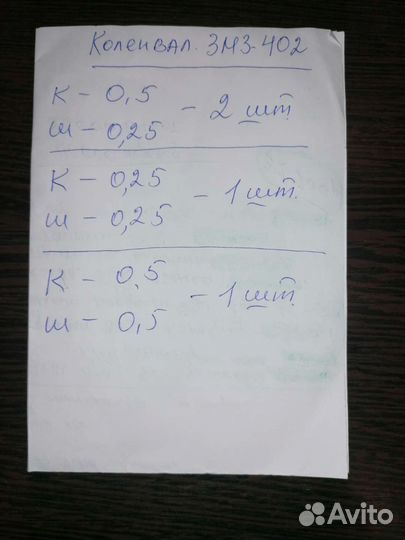 Коленвал. ЗМЗ-402
К – 0,5
ш – 0,25 – 2 шт.
К – 0,25
ш – 0,25 – 1 шт.
К – 0.5
ш – 0,5 – 1 шт.
Avito